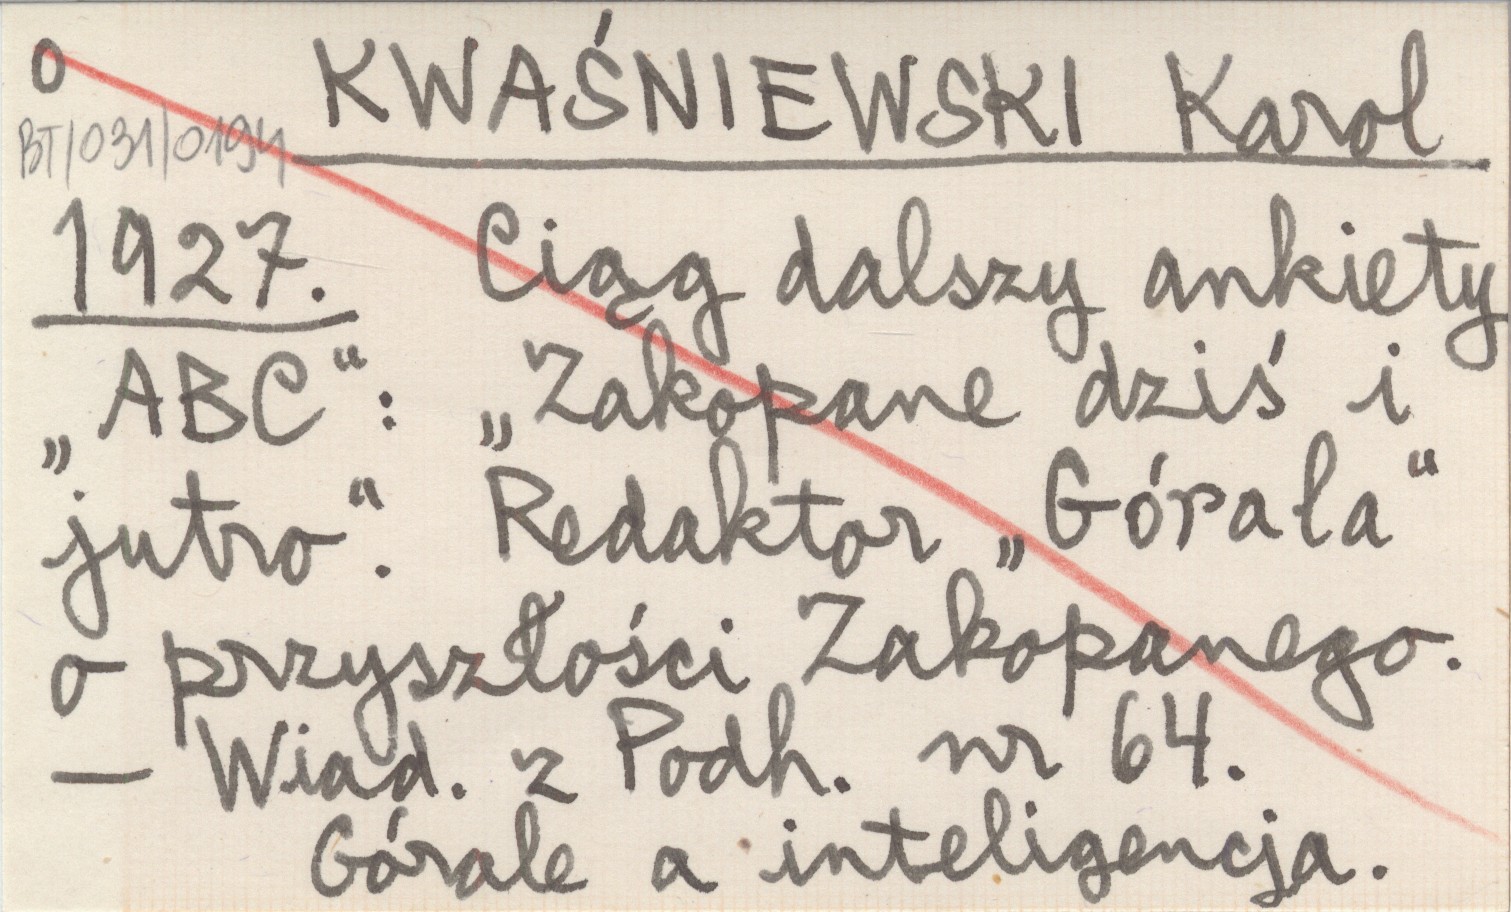 o KWAŚNIEWSKI Karol
BT/031/0194
1927. Ciąg dalszy ankiety
„ABC“: „Zakopane dziś i
jutro“. Redaktor „Górala“
o przyszłości Zakopanego.
— Wiad. z Podh. nr 64.
Górale a inteligencja.